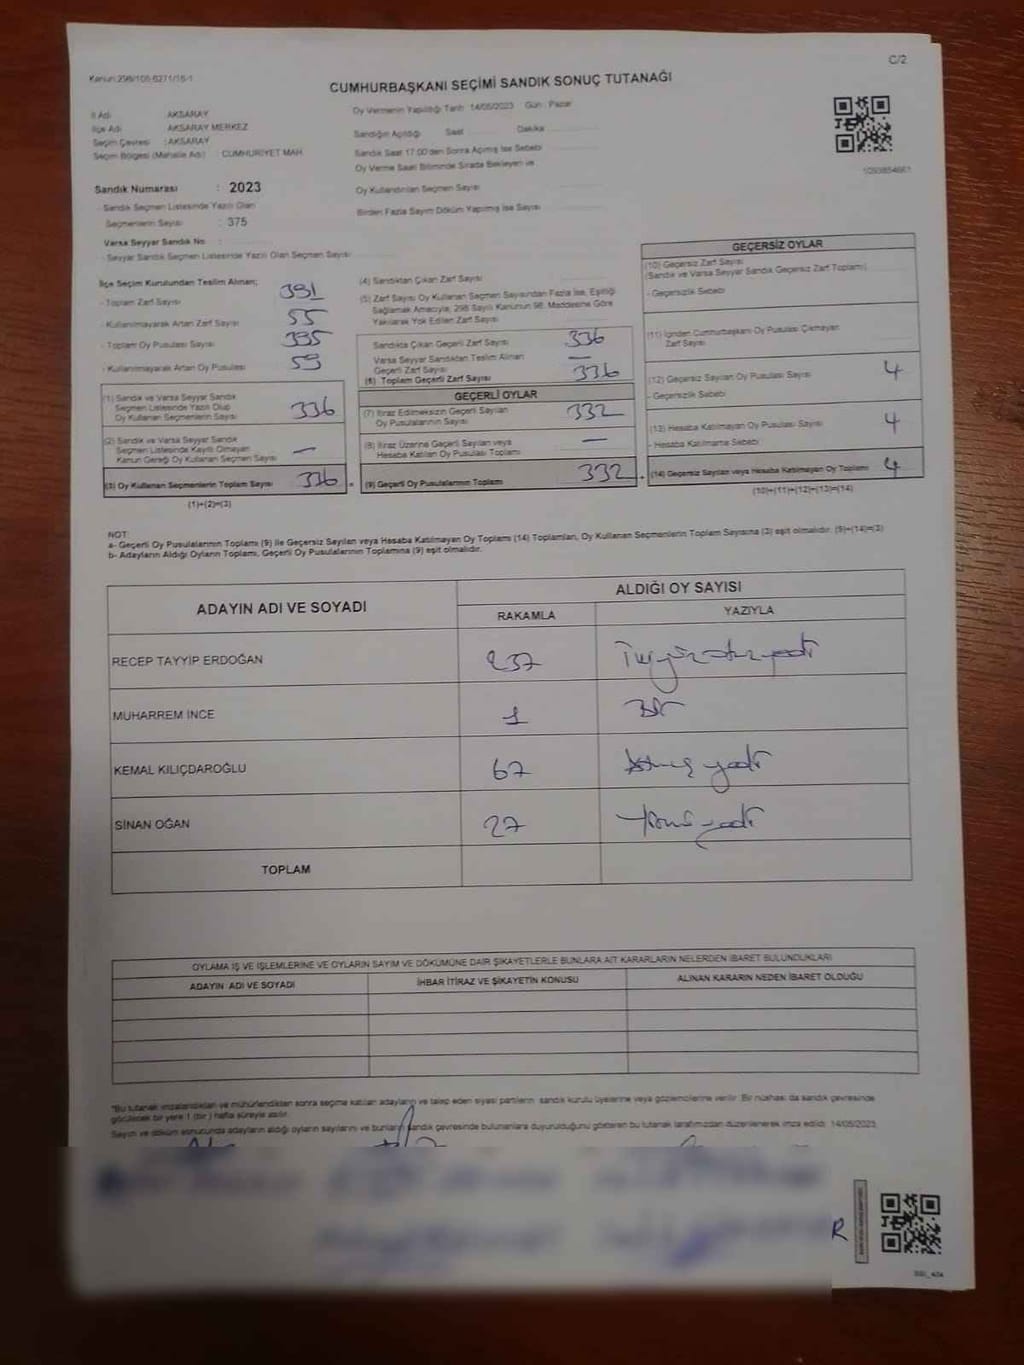 Kanun:298/105-6271/15-1
C/2
CUMHURBAŞKANI SEÇİMİ SANDIK SONUÇ TUTANAĞI
İl Adı AKSARAY
İlçe Adı AKSARAY MERKEZ
Seçim Çevresi : AKSARAY
Seçim Bölgesi (Mahalle Adı) : CUMHURİYET MAH.
Sandık Numarası : 2023
- Sandık Seçmen Listesinde Yazılı Olan
Seçmenlerin Sayısı : 375
Varsa Seyyar Sandık No :
- Seyyar Sandık Seçmen Listesinde Yazılı Olan Seçmen Sayısı
Oy Vermenin Yapıldığı Tarih 14/05/2023 Gün : Pazar
Sandığın Açıldığı Saat Dakika
Sandık Saat 17:00'den Sonra Açılmış İse Sebebi
Oy Verme Saati Bitiminde Sırada Bekleyen ve
Oy Kullandırılan Seçmen Sayısı
Birden Fazla Sayım Döküm Yapılmış İse Sayısı
1093854661
İlçe Seçim Kurulundan Teslim Alınan;
- Toplam Zarf Sayısı 391
- Kullanılmayarak Artan Zarf Sayısı 55
- Toplam Oy Pusulası Sayısı 395
- Kullanılmayarak Artan Oy Pusulası 59
(1) Sandık ve Varsa Seyyar Sandık
Seçmen Listesinde Yazılı Olup
Oy Kullanan Seçmenlerin Sayısı 336
(2) Sandık ve Varsa Seyyar Sandık
Seçmen Listesinde Kayıtlı Olmayan
Kanun Gereği Oy Kullanan Seçmen Sayısı —
(3) Oy Kullanan Seçmenlerin Toplam Sayısı 336
(1)+(2)=(3)
(4) Sandıktan Çıkan Zarf Sayısı
(5) Zarf Sayısı Oy Kullanan Seçmen Sayısından Fazla İse, Eşitliği
Sağlamak Amacıyla, 298 Sayılı Kanunun 98. Maddesine Göre
Yakılarak Yok Edilen Zarf Sayısı
Sandıkta Çıkan Geçerli Zarf Sayısı 336
Varsa Seyyar Sandıktan Teslim Alınan
Geçerli Zarf Sayısı —
(6) Toplam Geçerli Zarf Sayısı 336
GEÇERLİ OYLAR
(7) İtiraz Edilmeksizin Geçerli Sayılan
Oy Pusulalarının Sayısı 332
(8) İtiraz Üzerine Geçerli Sayılan veya
Hesaba Katılan Oy Pusulası Toplamı —
(9) Geçerli Oy Pusulalarının Toplamı 332
GEÇERSİZ OYLAR
(10) Geçersiz Zarf Sayısı
(Sandık ve Varsa Seyyar Sandık Geçersiz Zarf Toplamı)
- Geçersizlik Sebebi
(11) İçinden Cumhurbaşkanı Oy Pusulası Çıkmayan
Zarf Sayısı
(12) Geçersiz Sayılan Oy Pusulası Sayısı 4
- Geçersizlik Sebebi
(13) Hesaba Katılmayan Oy Pusulası Sayısı 4
- Hesaba Katılmama Sebebi
(14) Geçersiz Sayılan veya Hesaba Katılmayan Oy Toplamı 4
(10)+(11)+(12)+(13)=(14)
NOT:
a- Geçerli Oy Pusulalarının Toplamı (9) ile Geçersiz Sayılan veya Hesaba Katılmayan Oy Toplamı (14) Toplamları, Oy Kullanan Seçmenlerin Toplam Sayısına (3) eşit olmalıdır. (9)+(14)=(3)
b- Adayların Aldığı Oyların Toplamı, Geçerli Oy Pusulalarının Toplamına (9) eşit olmalıdır.
ADAYIN ADI VE SOYADI ALDIĞI OY SAYISI
RAKAMLA YAZIYLA
RECEP TAYYİP ERDOĞAN 237 İkiyüzotuzyedi
MUHARREM İNCE 1 Bir
KEMAL KILIÇDAROĞLU 67 Altmışyedi
SİNAN OĞAN 27 Yirmiyedi
TOPLAM
OYLAMA İŞ VE İŞLEMLERİNE VE OYLARIN SAYIM VE DÖKÜMÜNE DAİR ŞİKAYETLERLE BUNLARA AİT KARARLARIN NELERDEN İBARET BULUNDUKLARI
ADAYIN ADI VE SOYADI İHBAR İTİRAZ VE ŞİKAYETİN KONUSU ALINAN KARARIN NEDEN İBARET OLDUĞU
*Bu tutanak imzalandıktan ve mühürlendikten sonra seçime katılan adayların ve talep eden siyasi partilerin sandık kurulu üyelerine veya gözlemcilerine verilir. Bir nüshası da sandık çevresinde
görülecek bir yere 1 (bir) hafta süreyle asılır.
Sayım ve döküm sonucunda adayların aldığı oyların sayılarını ve bunların sandık çevresinde bulunanlara duyurulduğunu gösteren bu tutanak tarafımızdan düzenlenerek imza edildi. 14/05/2023
R